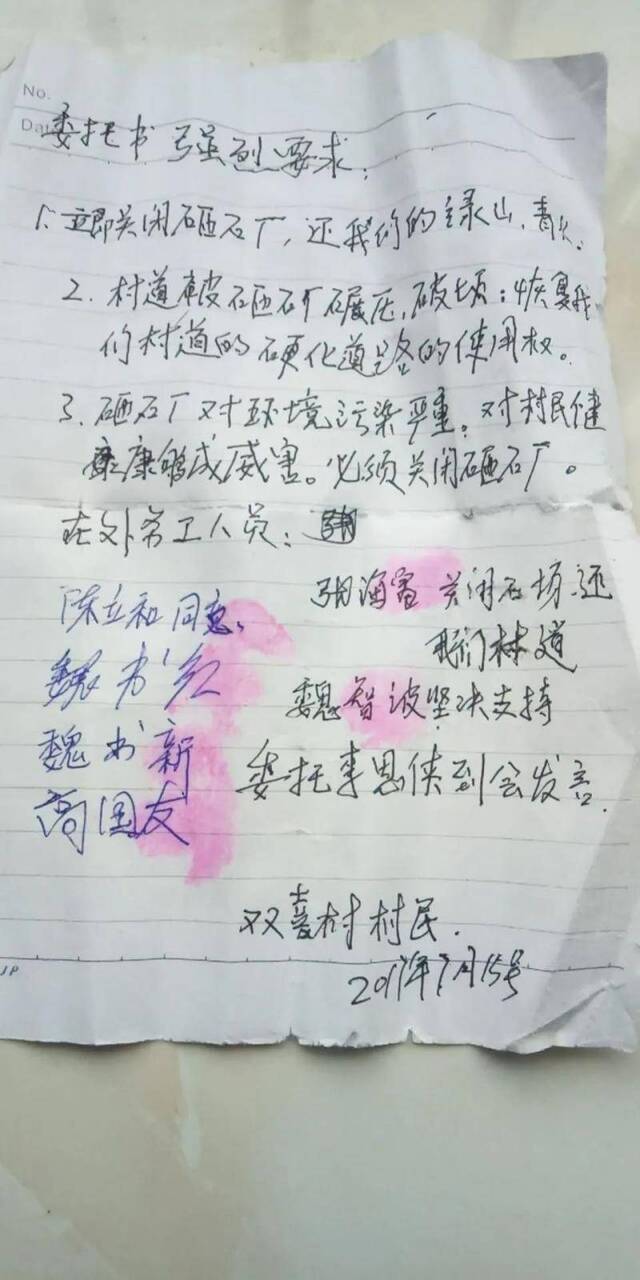 No.
Da
委托书 强烈要求:
1. 立即关闭砸石厂,还我们的绿山、青
2. 村道被砸石厂碾压,破坏;恢复我
们村道的硬化道路的使用权。
3. 砸石厂对环境污染严重。对村民健
康够成威害。必须关闭砸石厂。
在外务工人员:
张海 关闭石场.还
我们林道
陈立和同意.
魏书
魏智波坚决支持
魏书新
委托李恩侠到会发言.
高国友
双喜村村民.
2017年7月15号